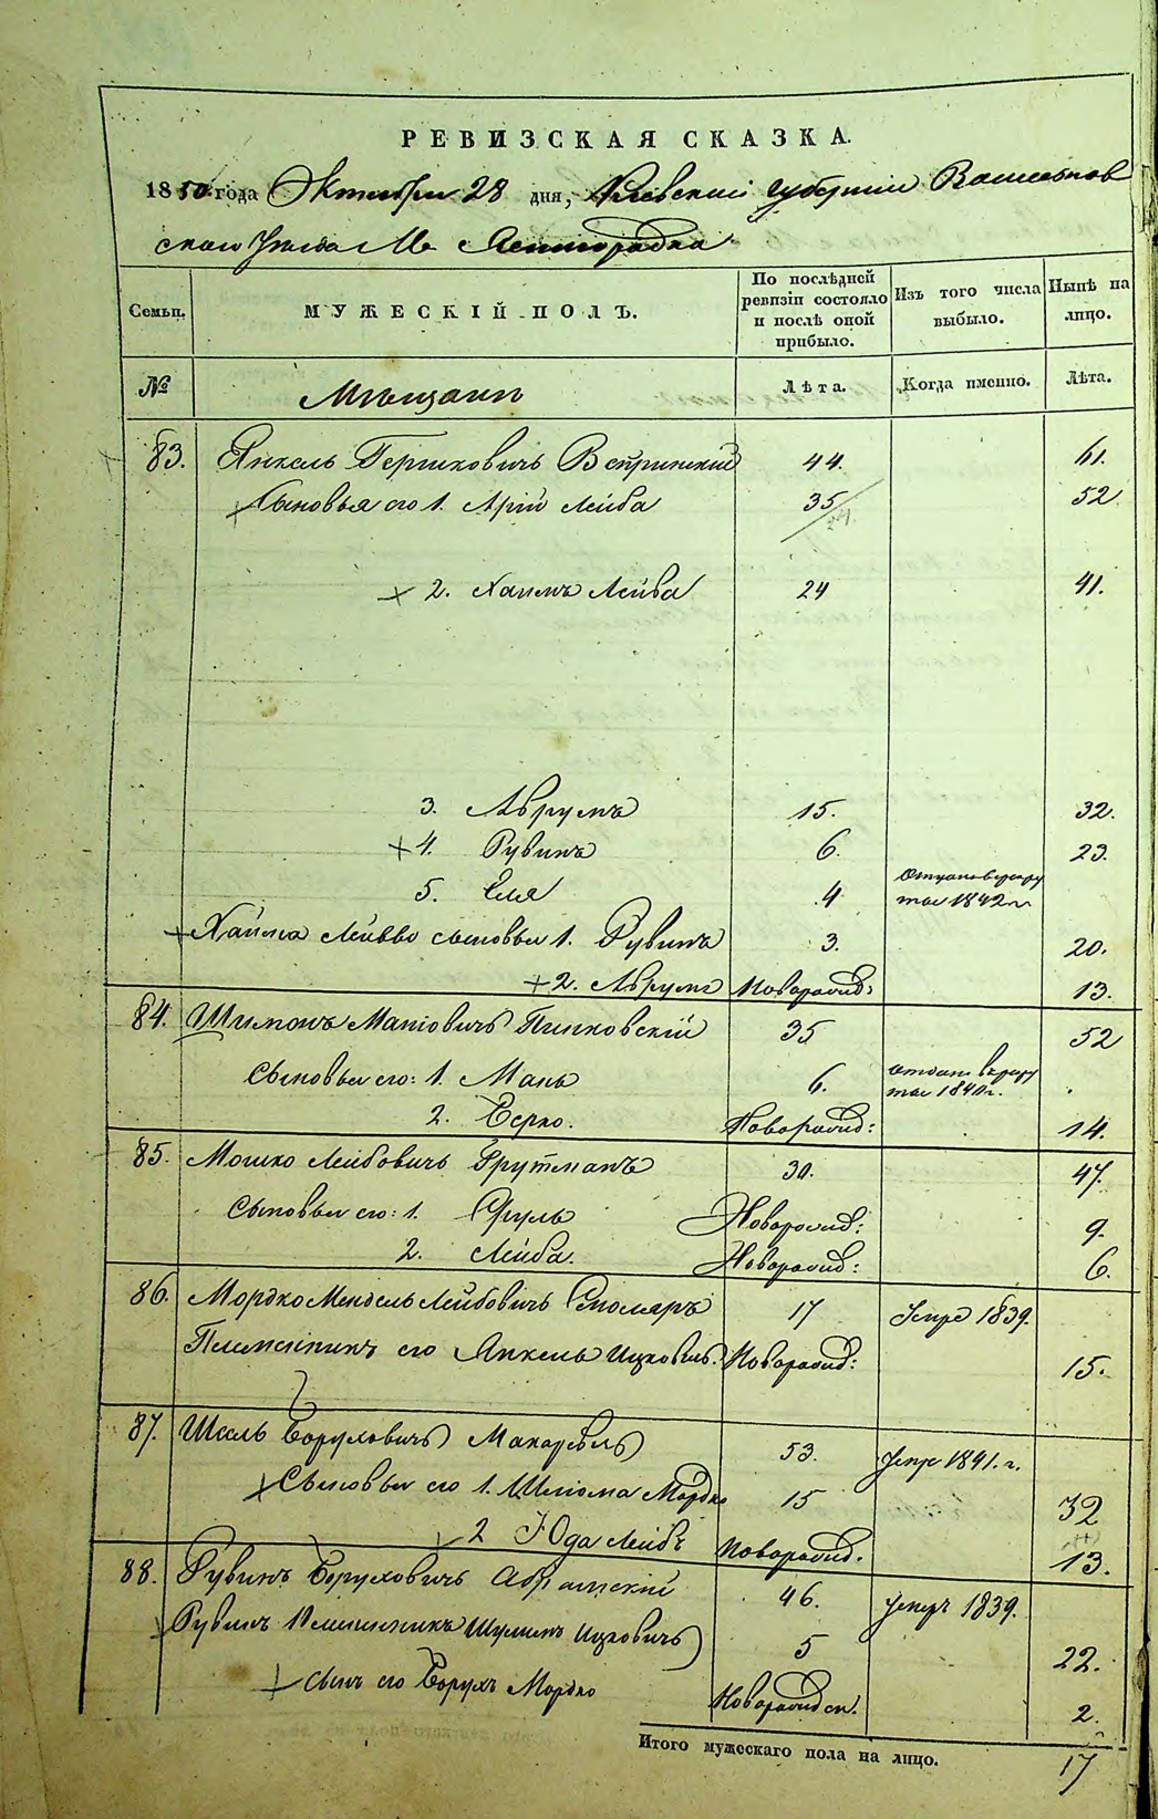 РЕВИЗСКАЯ СКАЗКА.
1850 года Октября 28 дня, Киевской губернии Васильков
скаго Уезда М.
Семьи.
МУЖЕСКІЙ ПОЛЪ.
По послѣдней ревизіи состояло и послѣ оной прибыло.
Изъ того числа выбыло.
Нынѣ на лицо.
№
Мещани
Лѣта.
Когда именно.
Лѣта.
83. Янкель Гершковичъ 44. 61.
Сыновья его 1. Арій Лейба 35 52
24.
2. Хаимъ Лейба 24 41.
3. Аврумъ 15. 32.
4. Рувинъ 6. 23.
5. Еля 4
1842
Хаима Лейбы сыновья 1. Рувинъ 3. 20.
2. Аврумъ Новорожд: 13.
84. Шимонъ Маніовичъ Пинковскій 35 52
Сыновья его: 1. Мань 6.
1840 г.
2. Берко. Новорожд: 14.
85. Мошко Лейбовичъ Грутманъ 30. 47.
Сыновья его: 1. Сруль Новорожд: 9.
2. Лейба. Новорожд: 6.
86. Мордко Мендель Лейбовичъ Столяръ 17 Умре 1839.
Племянникъ его Янкель Ицковичъ. Новорожд: 15.
87. Боруховичъ 53. Умре 1841. г.
Сыновья его 1. Шліома Мордко 15 32
2 Юда Лейбъ Новорожд. 13.
88. Рувинъ Боруховичъ 46. Умеръ 1839.
Рувина племянникъ Шулимъ Ицковичъ 5 22.
сынъ его Борухъ Мордко Новорожден. 2.
Итого мужескаго пола на лицо.
17